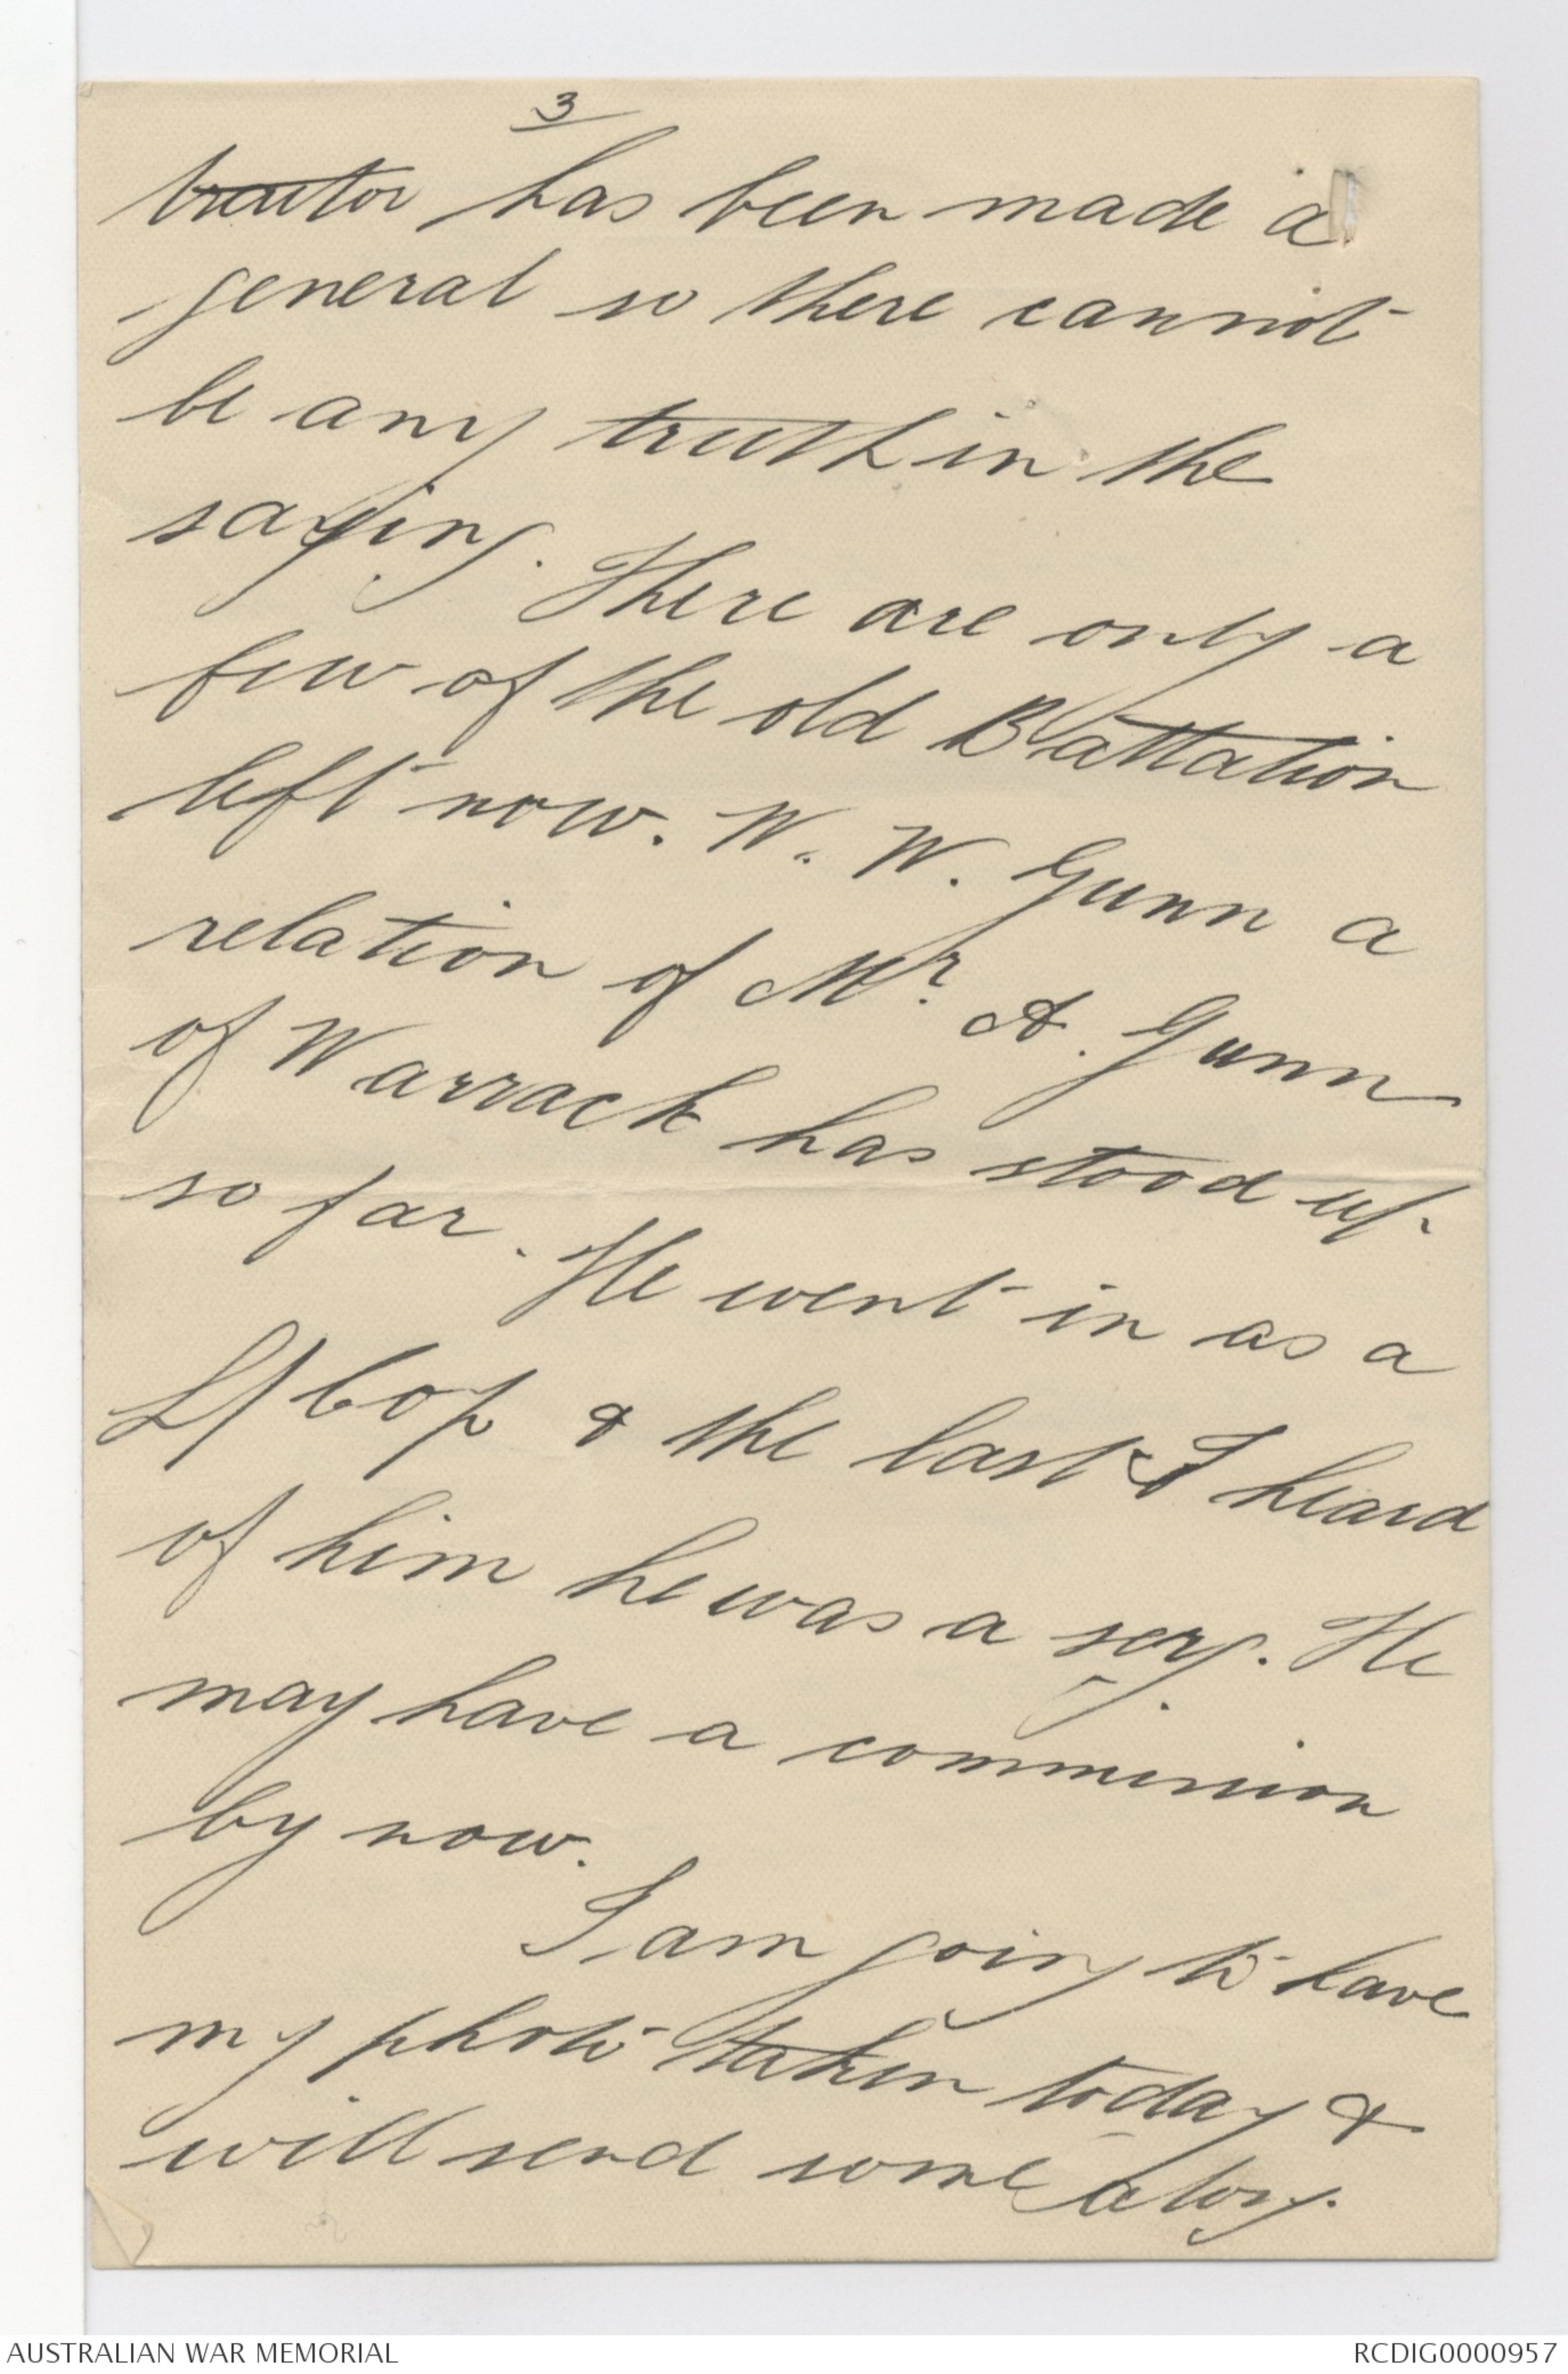 3
traitor has been made a
general so there cannot
be any truth in the
saying. There are only a
few of the old Battalion
left now. W. W. Gunn a
relation of Mr. A. Gunn
of Warrack has stood up
so far. He went in as a
L/Cop & the last I heard
of him he was a serg. He
may have a commission
by now.
I am going to have
my photo taken today &
will send some along.
AUSTRALIAN WAR MEMORIAL
RCDIG0000957